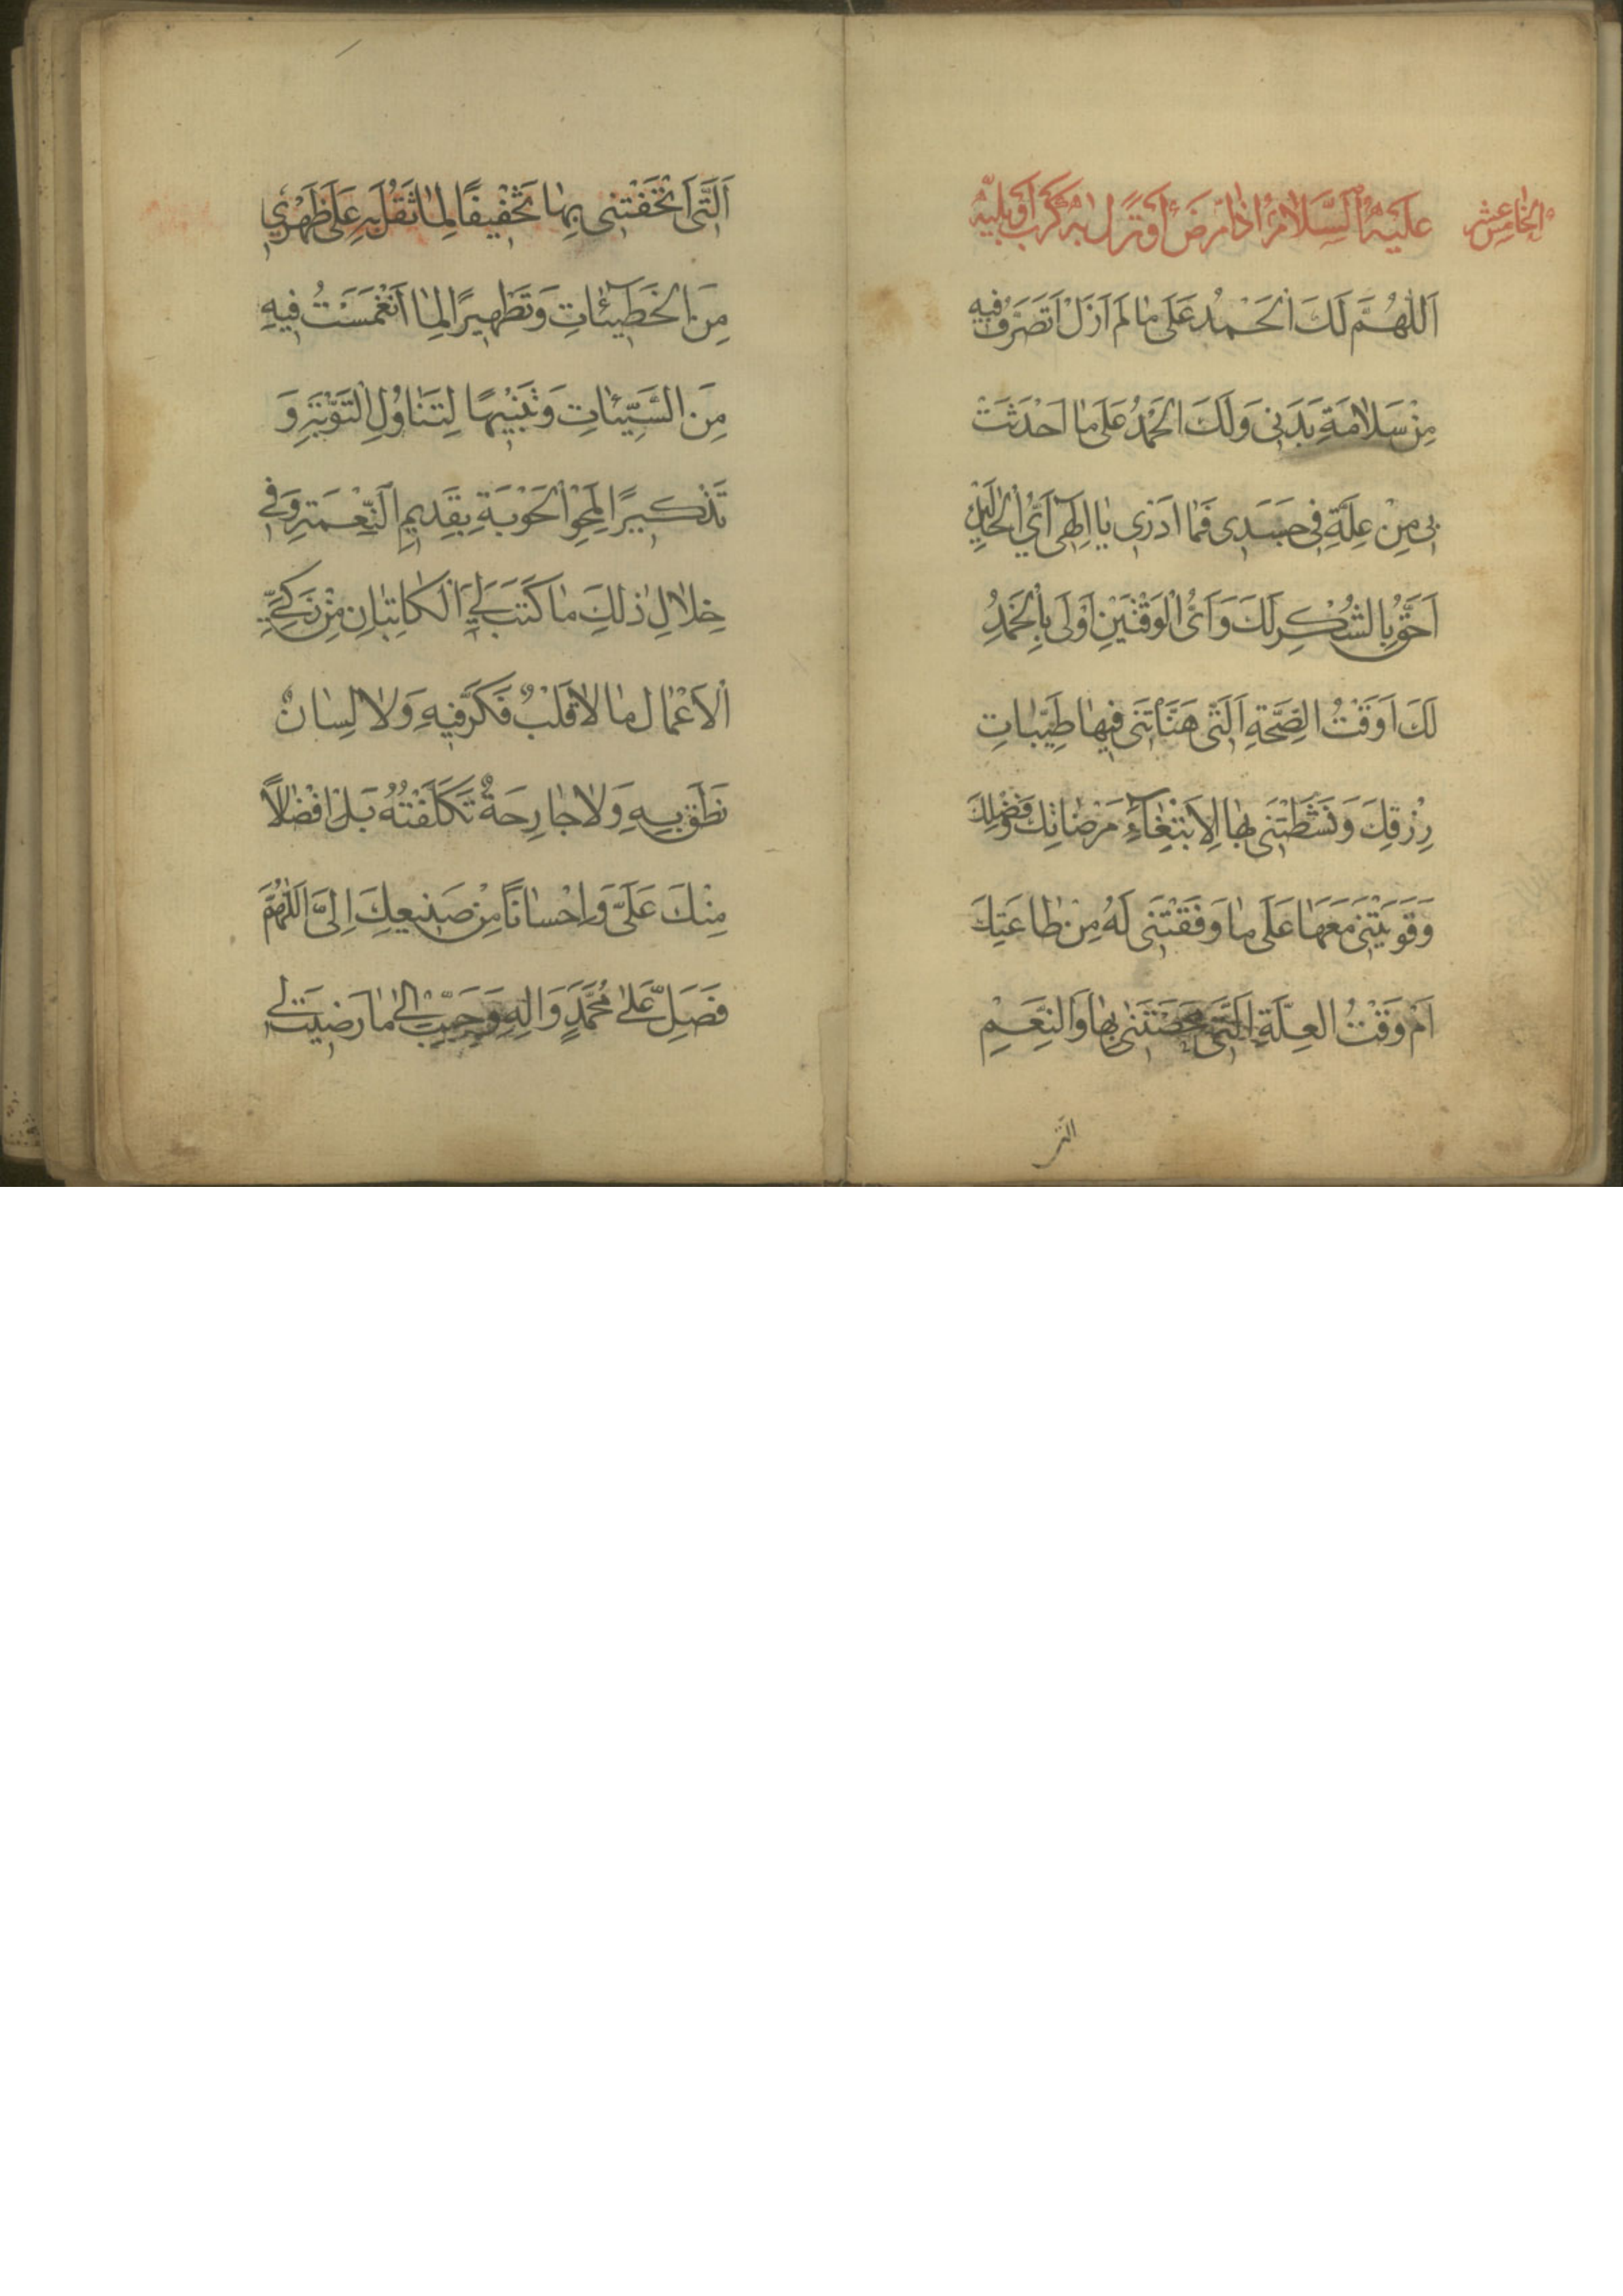 الخامس عشر
عَلَيْهِ السَّلَامُ اِذَا مَرِضَ اَوْ نَزَلَ بِهِ كَرْبٌ اَوْ بَلِيَّةٌ
اَللّٰهُمَّ لَكَ الْحَمْدُ عَلَى مَا لَمْ اَزَلْ اَتَصَرَّفُ فِيهِ
مِنْ سَلَامَةِ بَدَنِى وَلَكَ الْحَمْدُ عَلَى مَا اَحْدَثْتَ
بِى مِنْ عِلَّةٍ فِى جَسَدِى فَمَا اَدْرِى يَا اِلٰهِى اَىُّ الْحَالَيْنِ
اَحَقُّ بِالشُّكْرِ لَكَ وَاَىُّ الْوَقْتَيْنِ اَوْلَى بِالْحَمْدِ
لَكَ اَوَقْتُ الصِّحَّةِ اَلَّتِى هَنَّأْتَنِى فِيهَا طَيِّبَاتِ
رِزْقِكَ وَنَشَّطْتَنِى بِهَا لِابْتِغَآءِ مَرْضَاتِكَ وَفَضْلِكَ
وَقَوَّيْتَنِى مَعَهَا عَلَى مَا وَفَّقْتَنِى لَهُ مِنْ طَاعَتِكَ
اَمْ وَقْتُ الْعِلَّةِ اَلَّتِى مَحَّصْتَنِى بِهَا وَالنِّعَمِ
التى
اَلَّتِى اَتْحَفْتَنِى بِهَا تَخْفِيفًا لِمَا ثَقُلَ بِهِ عَلَى ظَهْرِى
مِنَ الْخَطِيئَاتِ وَتَطْهِيرًا لِمَا انْغَمَسْتُ فِيهِ
مِنَ السَّيِّئَاتِ وَتَنْبِيهًا لِتَنَاوُلِ التَّوْبَةِ وَ
تَذْكِيرًا لِمَحْوِ الْحَوْبَةِ بِقَدِيمِ النِّعْمَةِ وَفِى
خِلَالِ ذٰلِكَ مَا كَتَبَ لِىَ الْكَاتِبَانِ مِنْ زَكِىِّ
الْاَعْمَالِ مَا لَا قَلْبٌ فَكَّرَ فِيهِ وَلَا لِسَانٌ
نَطَقَ بِهِ وَلَا جَارِحَةٌ تَكَلَّفَتْهُ بَلْ اِفْضَالًا
مِنْكَ عَلَىَّ وَاِحْسَانًا مِنْ صَنِيعِكَ اِلَىَّ اَللّٰهُمَّ
فَصَلِّ عَلَى مُحَمَّدٍ وَاٰلِهِ وَحَبِّبْ اِلَىَّ مَا رَضِيتَ لِى